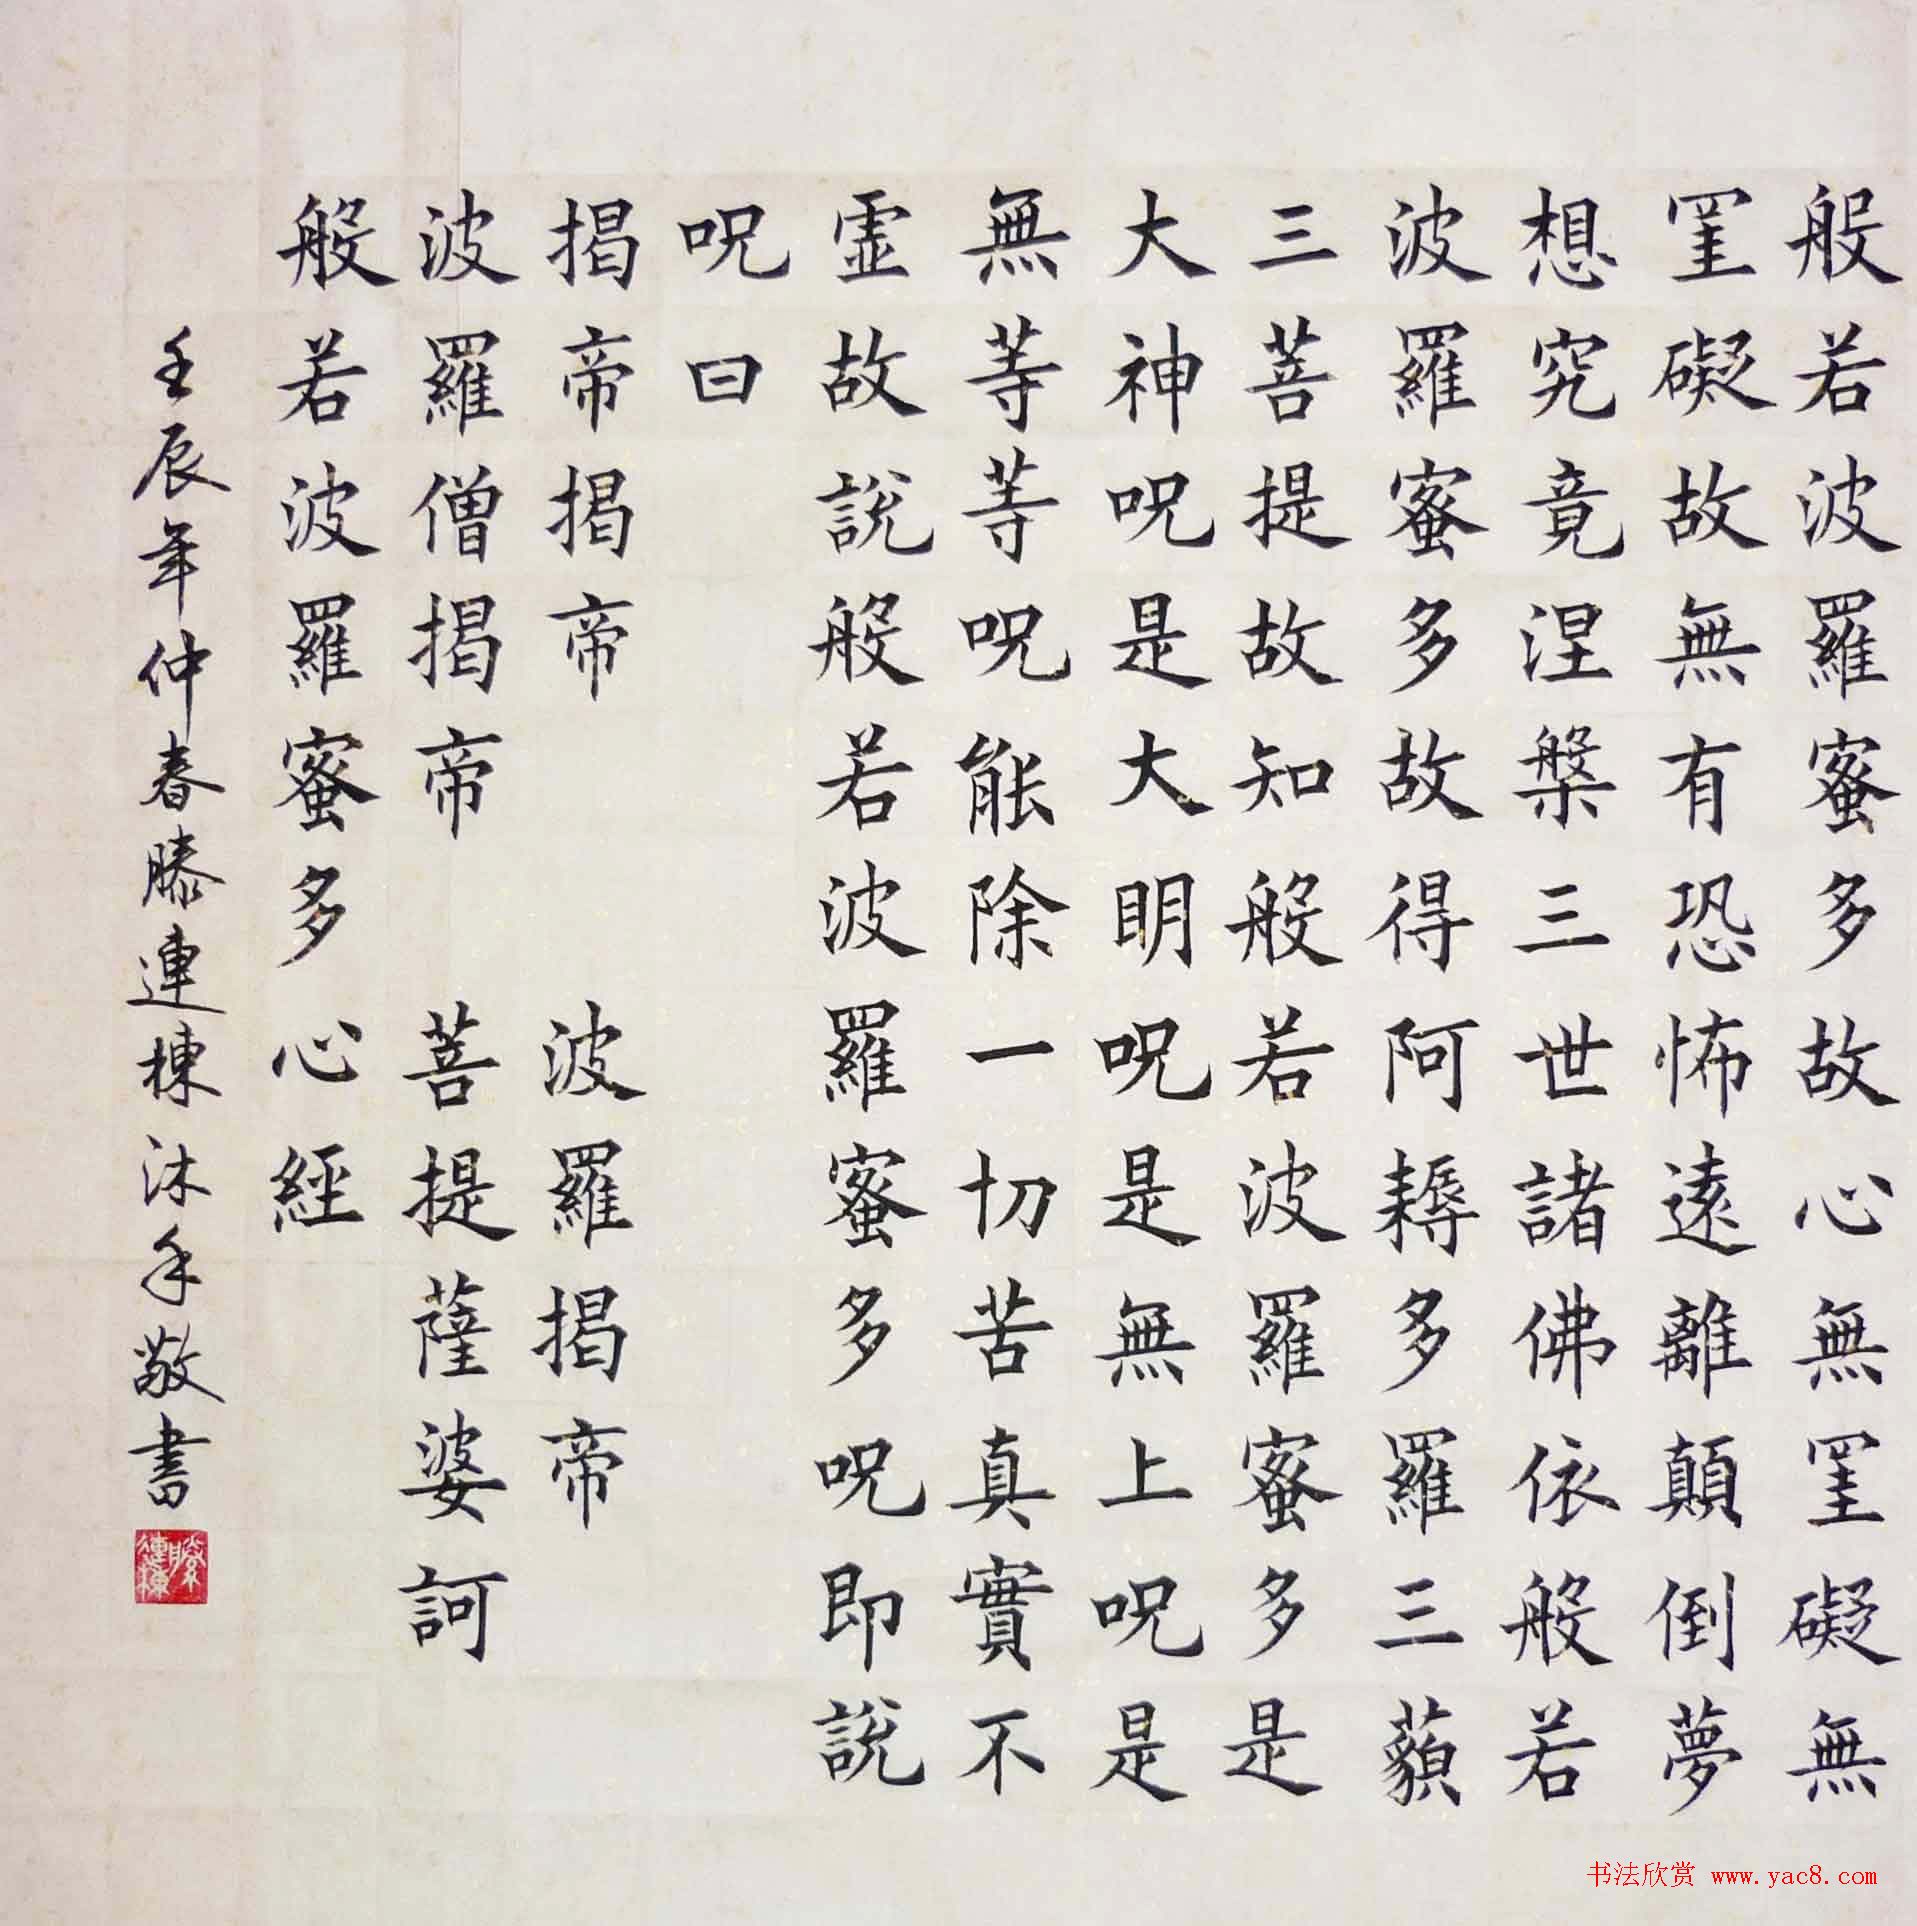 般若波羅蜜多故心無罣礙無
罣礙故無有恐怖遠離顛倒夢
想究竟涅槃三世諸佛依般若
波羅蜜多故得阿耨多羅三藐
三菩提故知般若波羅蜜多是
大神呪是大明呪是無上呪是
無等等呪能除一切苦真實不
虛故說般若波羅蜜多呪即說
呪曰
揭帝揭帝 波羅揭帝
波羅僧揭帝 菩提薩婆訶
般若波羅蜜多心經
壬辰年仲春滕連棟沐手敬書
滕連棟
书法欣赏 www.yac8.com